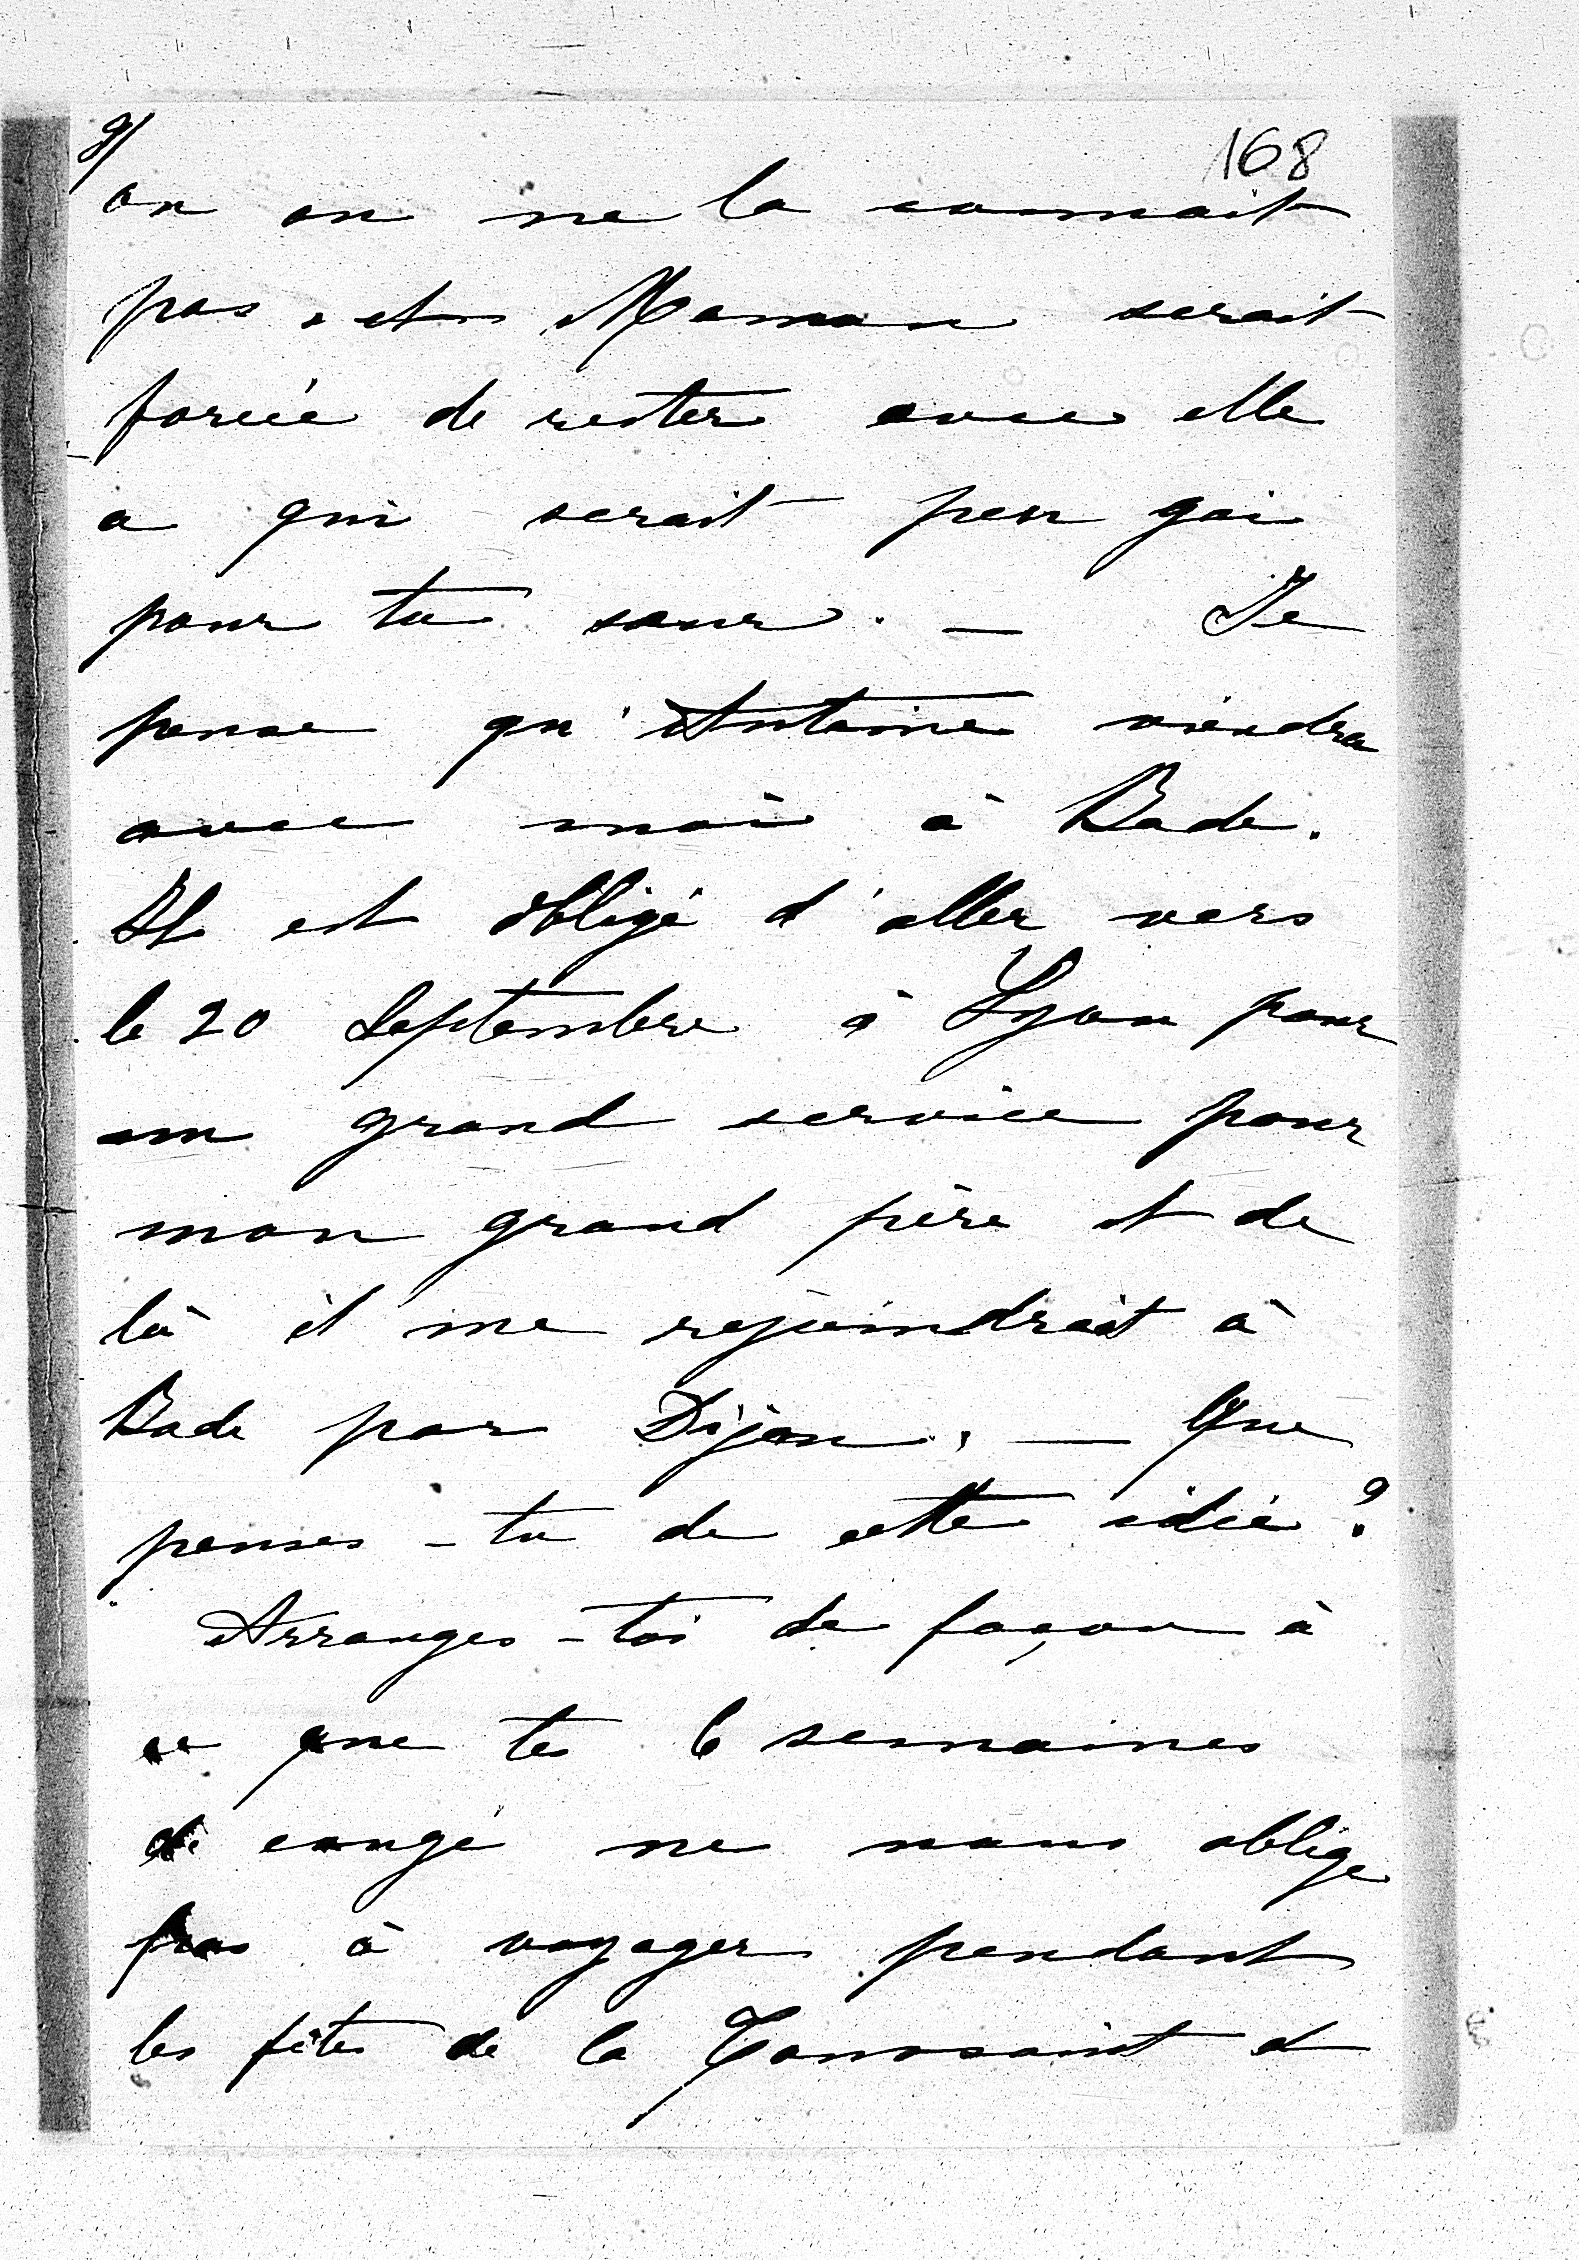 9/
168
on on ne la connait
pas, et Maman serait
forcée de rester avec elle
ce qui serait peu gai
pour ta sœur. — Je
pense qu'Antoine viendra
avec moi à Bade.
Il est obligé d'aller vers
le 20 Septembre à Lyon pour
un grand service pour
mon grand père et de
là il me rejoindrait à
Bade par Dijon. — Que
penses-tu de cette idée ?
Arranges-toi de façon à
ce que tes 6 semaines
de congé ne nous oblige
pas à voyager pendant
les fêtes de la Toussaint et